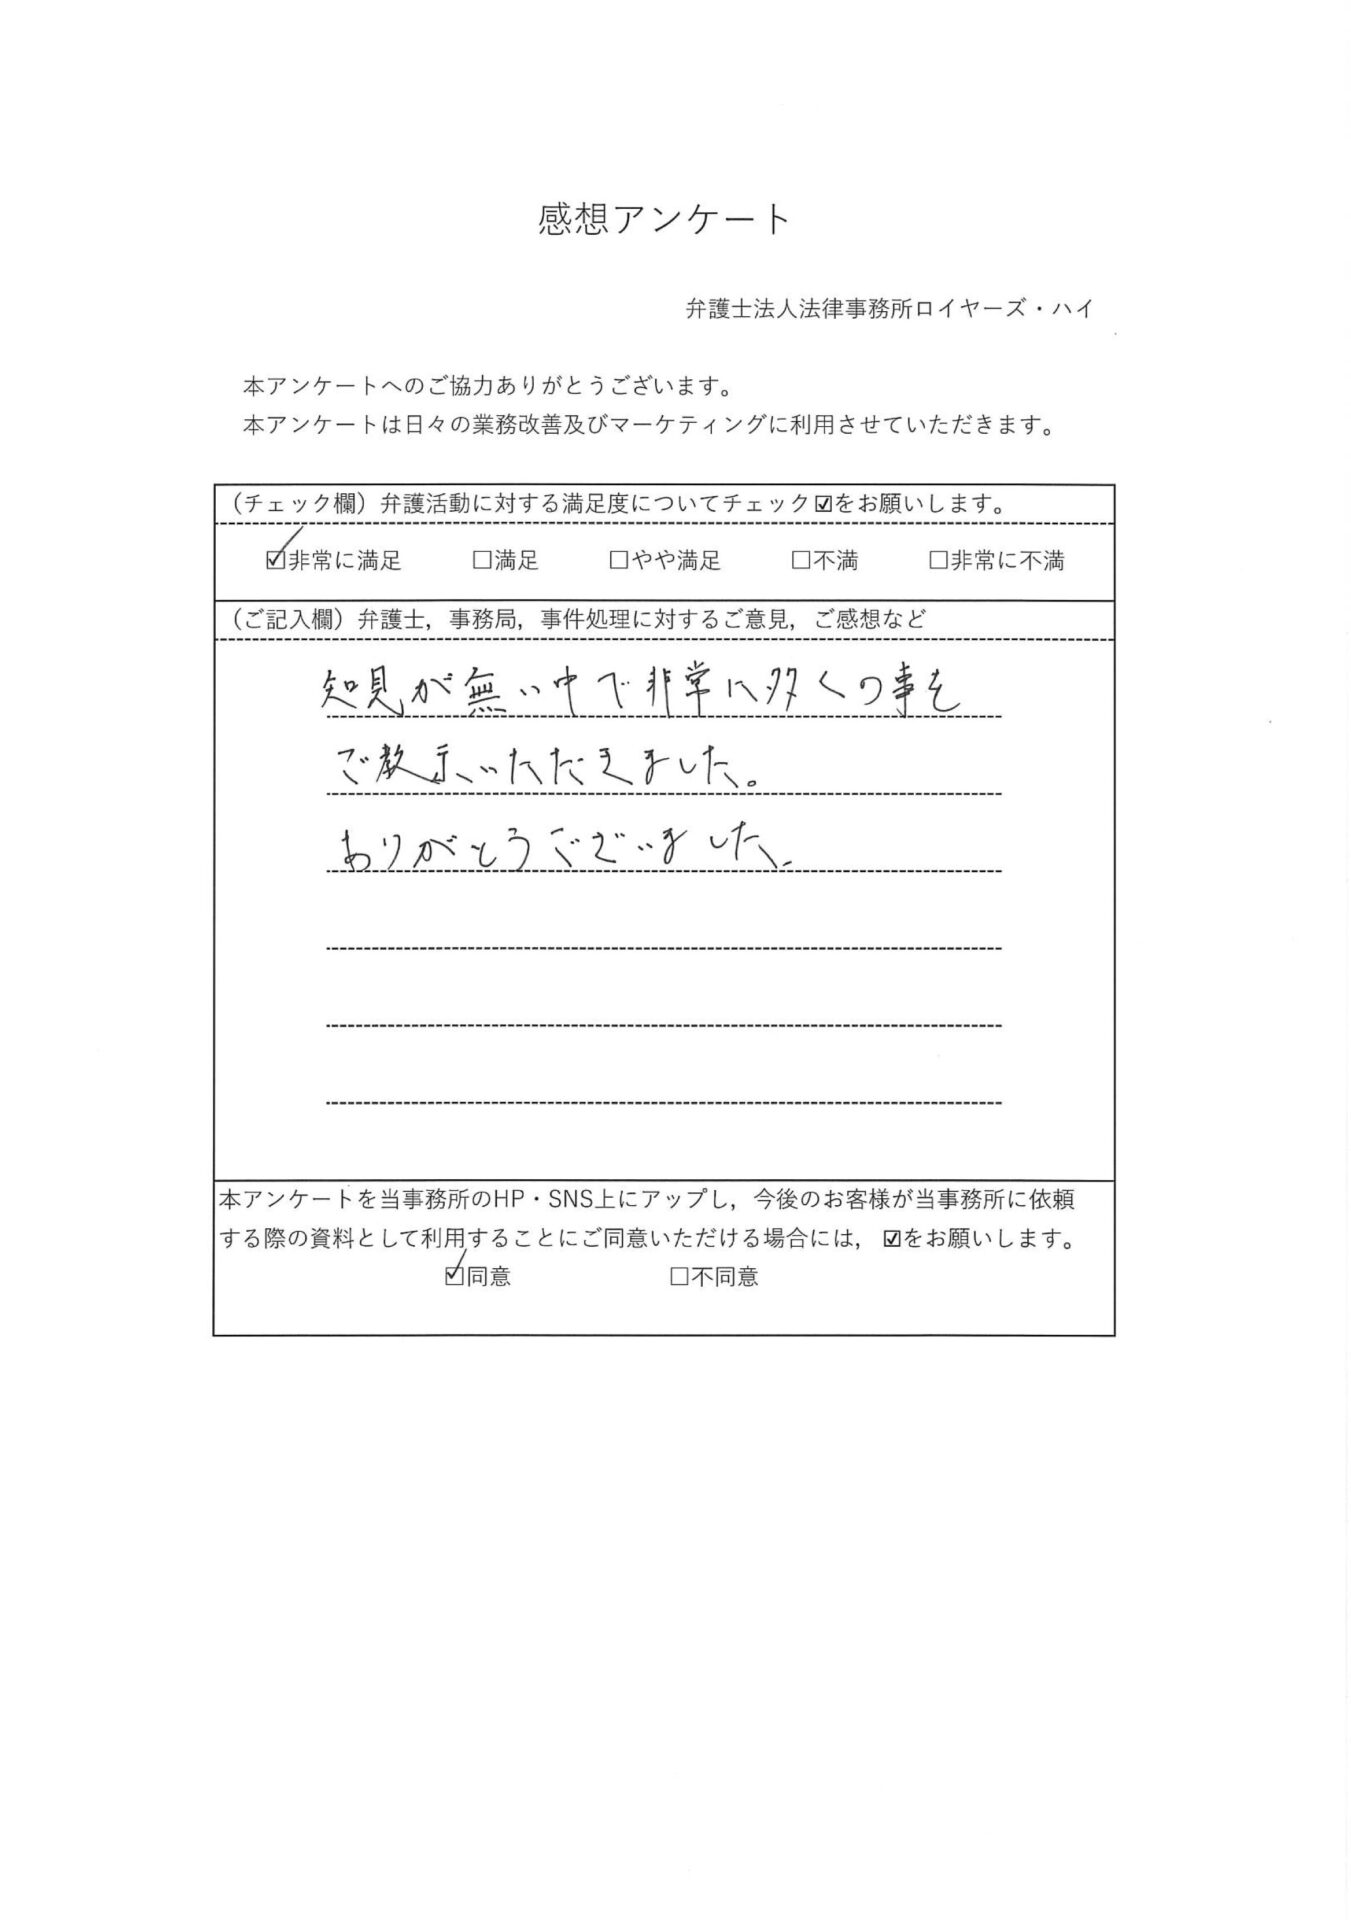 感想アンケート
弁護士法人法律事務所ロイヤーズ・ハイ
本アンケートへのご協力ありがとうございます。
本アンケートは日々の業務改善及びマーケティングに利用させていただきます。
（チェック欄）弁護活動に対する満足度についてチェック☑をお願いします。
☑非常に満足 □満足 □やや満足 □不満 □非常に不満
（ご記入欄）弁護士，事務局，事件処理に対するご意見，ご感想など
知見が無い中で非常に多くの事を
ご教示いただきました。
ありがとうございました。
本アンケートを当事務所のHP・SNS上にアップし，今後のお客様が当事務所に依頼
する際の資料として利用することにご同意いただける場合には，☑をお願いします。
☑同意 □不同意